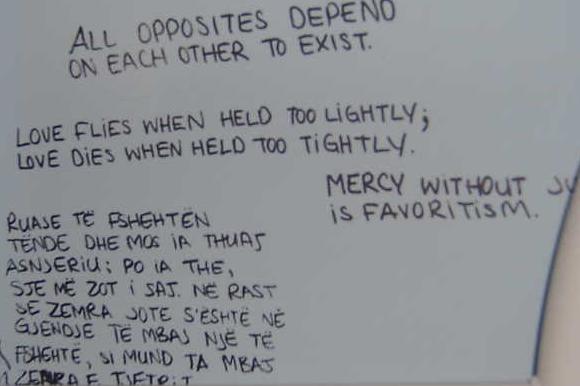 ALL OPPOSITES DEPEND
ON EACH OTHER TO EXIST.
LOVE FLIES WHEN HELD TOO LIGHTLY;
LOVE DIES WHEN HELD TOO TIGHTLY.
MERCY WITHOUT JU
IS FAVORITISM.
RUAJE TË FSHEHTËN
TËNDE DHE MOS IA THUAJ
ASNJERIU; PO IA THE,
SJE MË ZOT I SAJ. NË RAST
SE ZEMRA JOTE S'ËSHTË NË
GJENDJE TË MBAJ NJË TË
FSHEHTË, SI MUND TA MBAJ
ZEMRA E TJETRIT